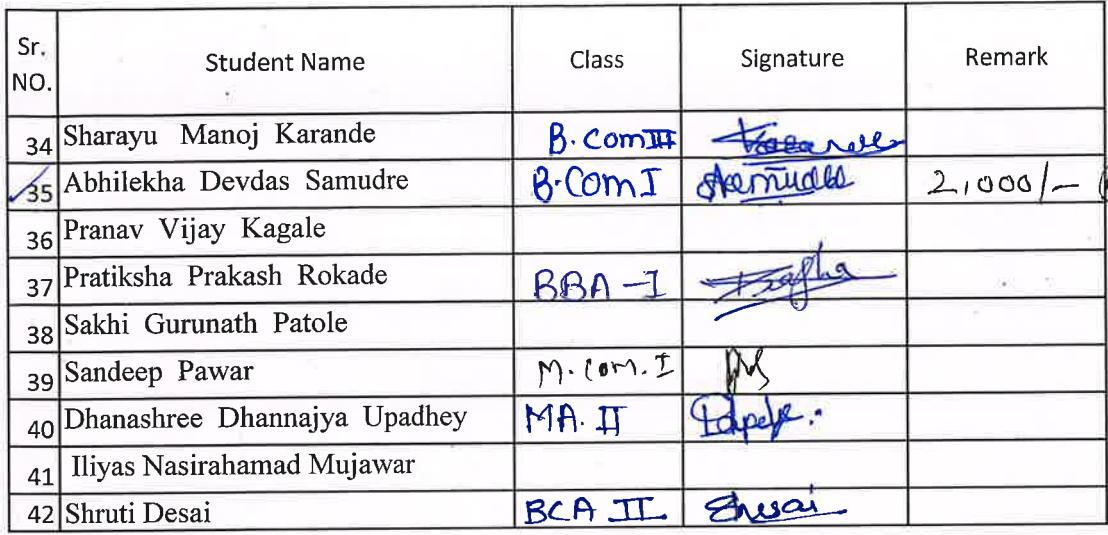 Sr. NO. Student Name Class Signature Remark
34 Sharayu Manoj Karande B.Com III
35 Abhilekha Devdas Samudre B.COM I 2,000/-
36 Pranav Vijay Kagale
37 Pratiksha Prakash Rokade BBA - I
38 Sakhi Gurunath Patole
39 Sandeep Pawar M.Com. I
40 Dhanashree Dhannajya Upadhey MA. II
41 Iliyas Nasirahamad Mujawar
42 Shruti Desai BCA II